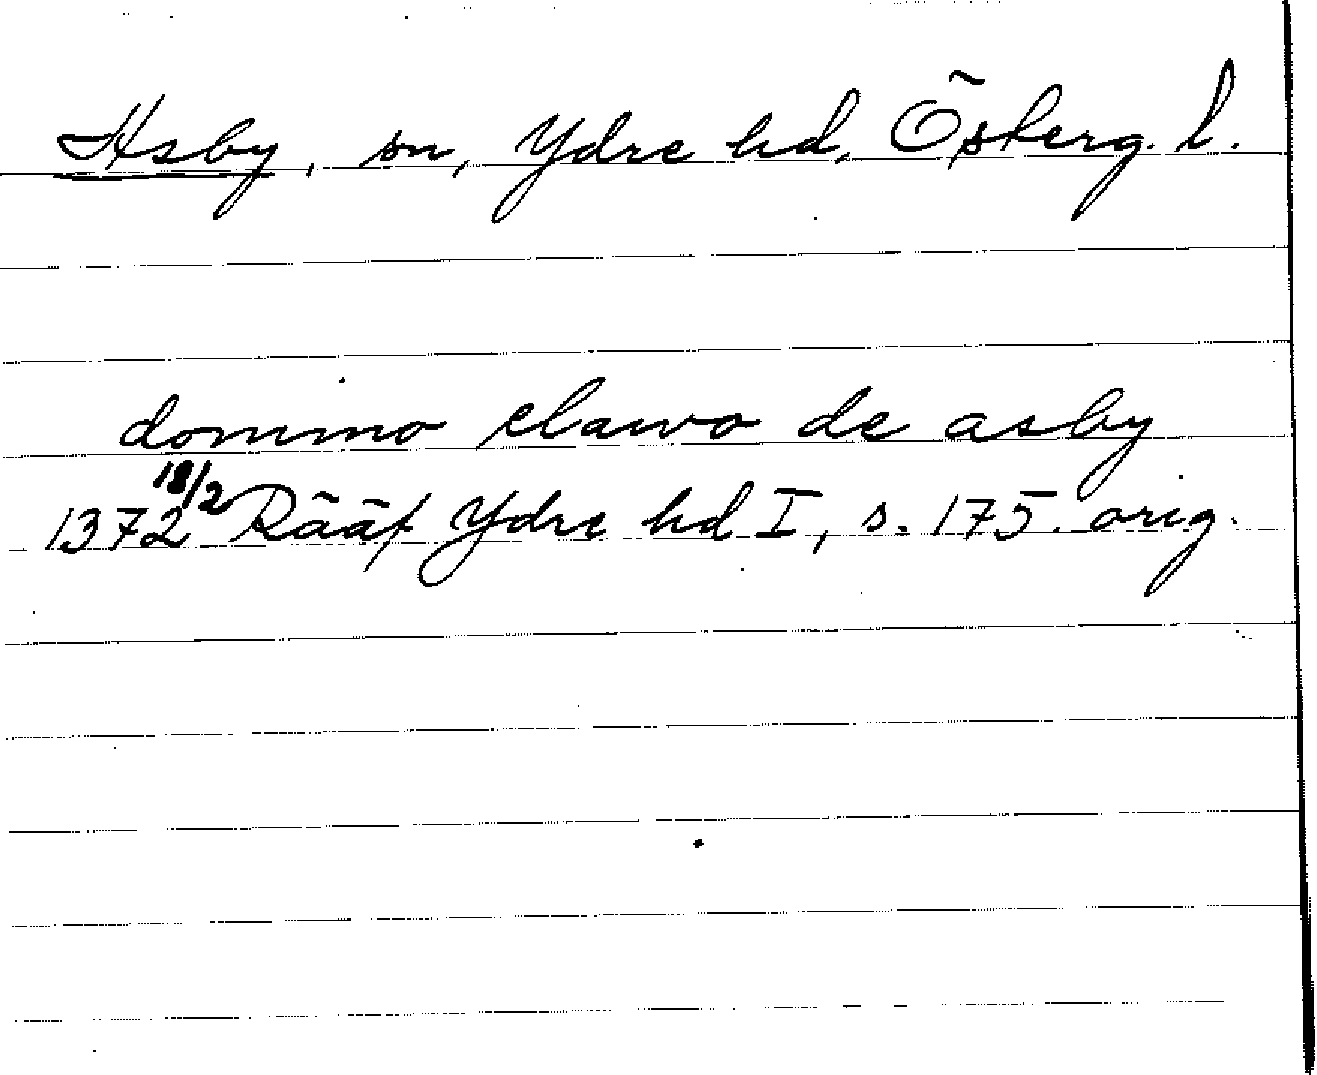 Asby, sn, Ydre hd, Österg. l.
domino elawo de asby
1372 18/2 Rääf Ydre hd I, s. 175. orig.